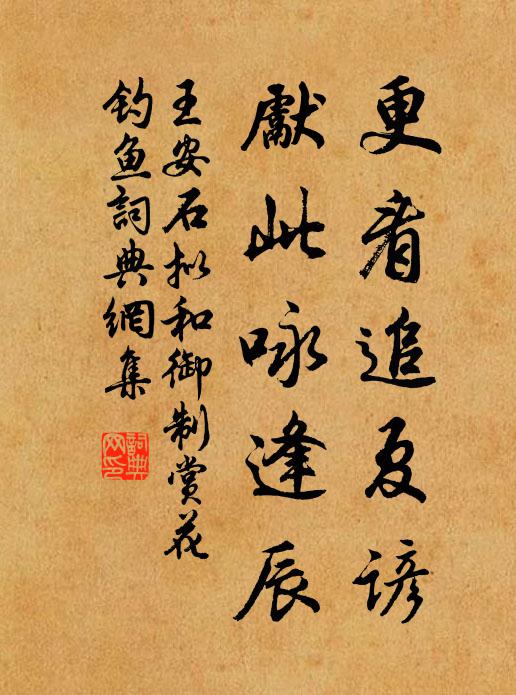 更看追夏諺
獻此咏逢辰
王安石拟和御制赏花
钓鱼詞典網集
詞典网印